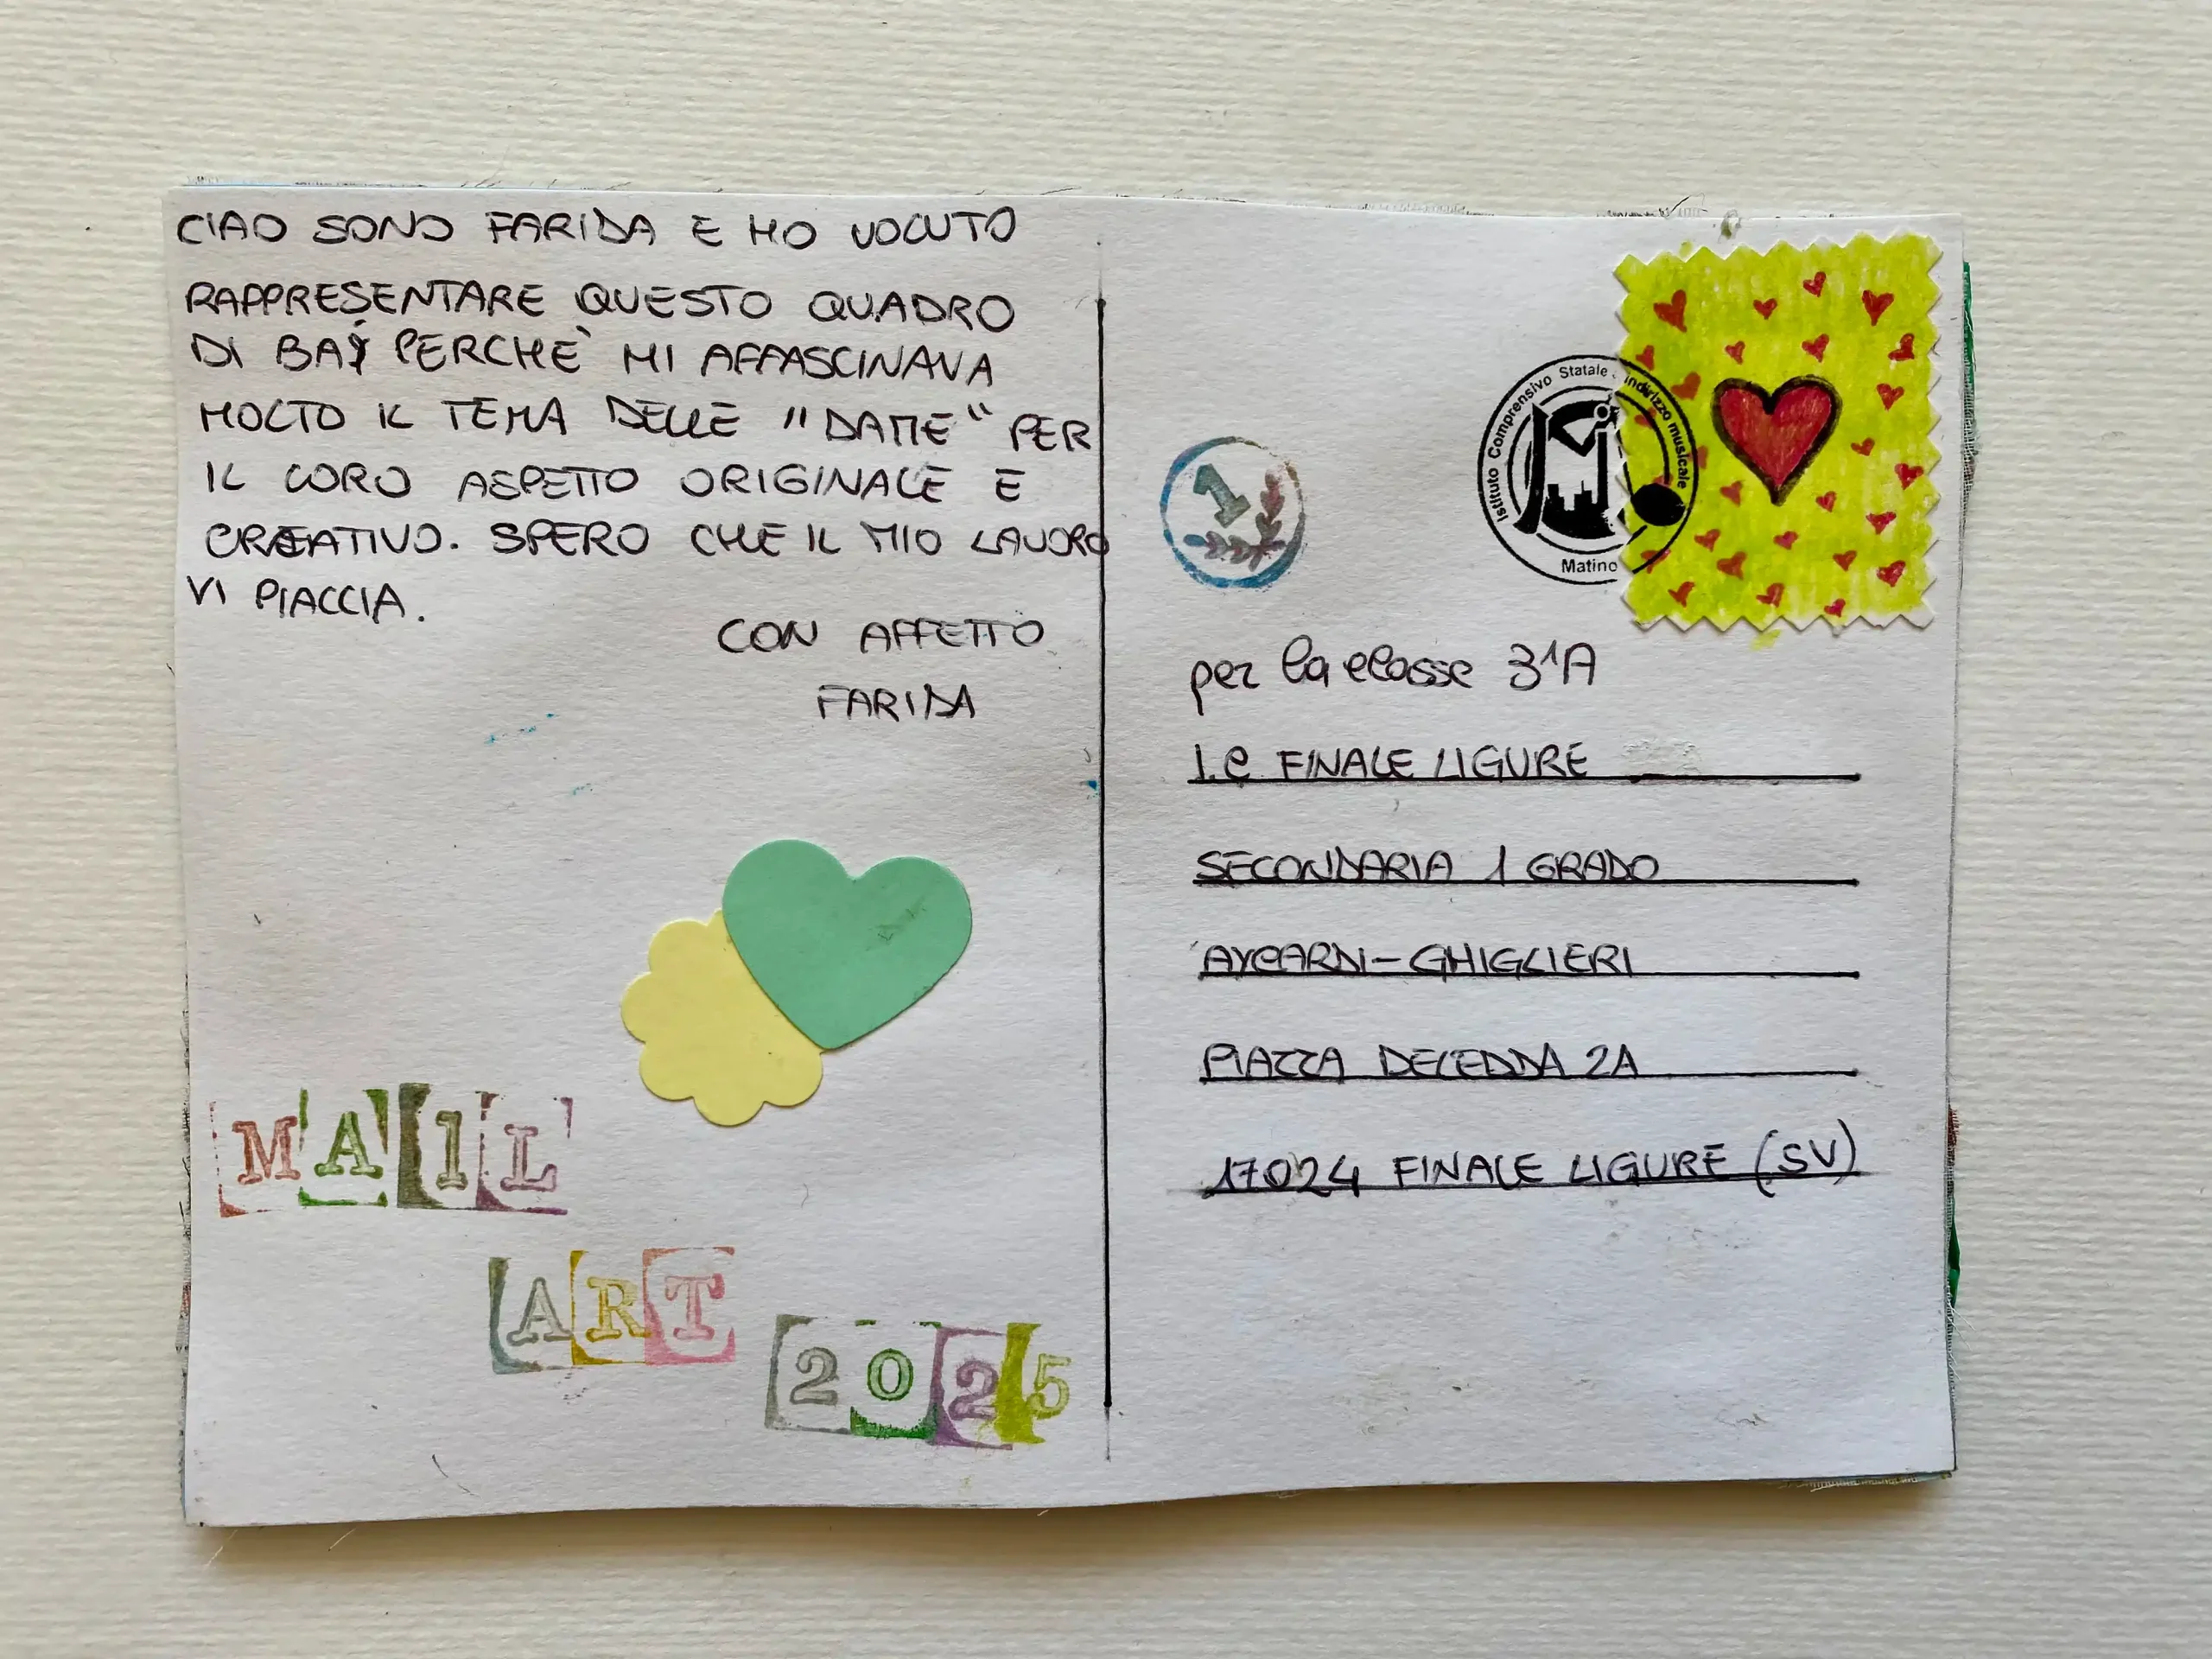 CIAO SONO FARIDA E HO VOLUTO
RAPPRESENTARE QUESTO QUADRO
DI BAJ PERCHÈ MI AFFASCINAVA
MOLTO IL TEMA DELLE "DAME" PER
IL LORO ASPETTO ORIGINALE E
CREATIVO. SPERO CHE IL MIO LAVORO
VI PIACCIA.
CON AFFETTO
FARIDA
MAIL
ART
2025
1
Istituto Comprensivo Statale indirizzo musicale
Matino
per la classe 3^A
I.C FINALE LIGURE
SECONDARIA 1 GRADO
AYCARDI-GHIGLIERI
PIAZZA DELEDDA 2A
17024 FINALE LIGURE (SV)